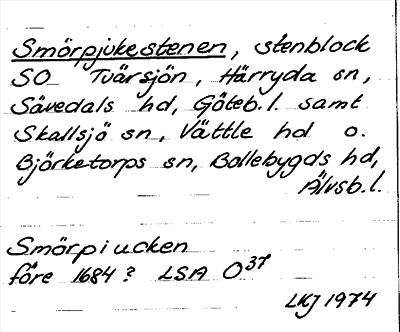 Smörpjukestenen, stenblock
SO Tvärsjön, Härryda sn,
Sävedals hd, Göteb.l. samt
Skallsjö sn, Vättle hd o.
Björketorps sn, Bollebygds hd,
Älvsb.l.
Smörpiucken
före 1684? LSA O37
LKJ 1974